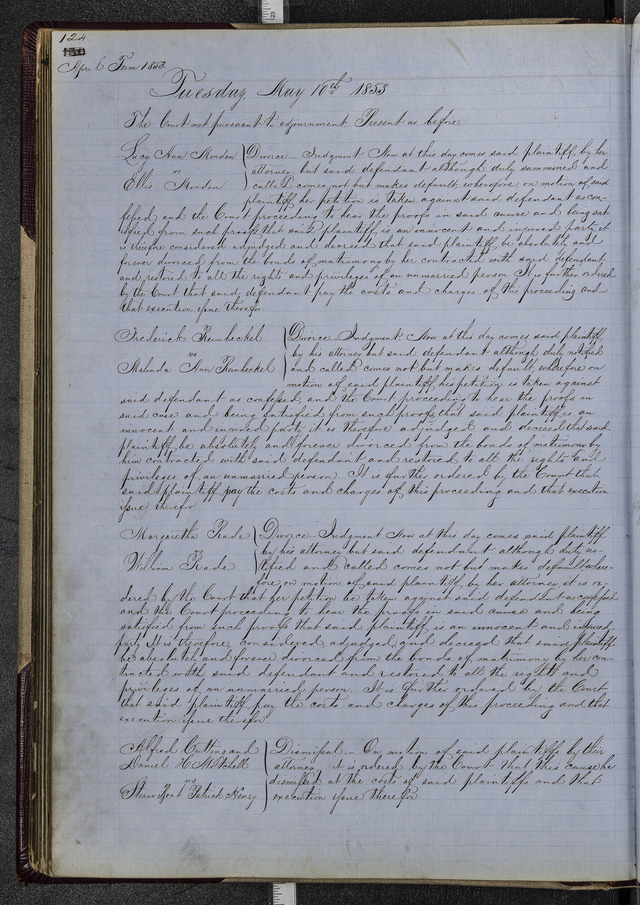 124
April Term 1853
Tuesday May 10th 1853
The Court met pursuant to adjournment. Present as before.
Lucy Ann
vs
Ellis
Divorce - Judgment Now at this day comes said plaintiff by her
attorney but said defendant although duly summoned and
called comes not but makes default wherefore on motion of said
plaintiff her petition is taken against said defendant as con-
fessed and the Court proceeding to hear the proofs in said cause and being sat
isfied from such proofs that said plaintiff is an innocent and injured party it
is therefore considered adjudged and decreed that said plaintiff be absolutely and
forever divorced from the bonds of matrimony by her contracted with said defendant
and restored to all the rights and privileges of an unmarried person It is further ordered
by the Court that said defendant pay the costs and charges of this proceeding and
that execution issue therefor
Frederick Reinheckel
vs
Malinda Ann Reinheckel
Divorce Judgment Now at this day comes said plaintiff
by his attorney but said defendant although duly notified
and called comes not but makes default wherefore on
motion of said plaintiff his petition is taken against
said defendant as confessed and the Court proceeding to hear the proofs in
said case and being satisfied from such proofs that said plaintiff is an
innocent and injured party it is therefore adjudged and decreed that said
plaintiff be absolutely and forever divorced from the bonds of matrimony by
him contracted with said defendant and restored to all the rights and
privileges of an unmarried person. It is further ordered by the Court that
said plaintiff pay the costs and charges of this proceeding and that execution
issue therefor
Margaretha Rade
William Rade
Divorce - Judgment Now at this day comes said plaintiff
by his attorney but said defendant although duly no-
tified and called comes not but makes default where-
fore on motion of said plaintiff by her attorney it is or-
dered by the Court that her petition be taken against said defendant as confessed
and the Court proceeding to hear the proofs in said cause and being
satisfied from such proofs that said plaintiff is an innocent and injured
party It is therefore considered adjudged and decreed that said plaintiff
be absolutely and forever divorced from the bonds of matrimony by her con-
tracted with said defendant and restored to all the rights and
privileges of an unmarried person. It is further ordered by the Court
that said plaintiff pay the costs and charges of this proceeding and that
execution issue therefor.
Alfred Cutting and
Daniel H
vs
Steam Boat Patrick Henry
Dismissal - On motion of said plaintiffs by their
attorney it is ordered by the Court that this cause be
dismissed at the costs of said plaintiffs and that
execution issue therefor